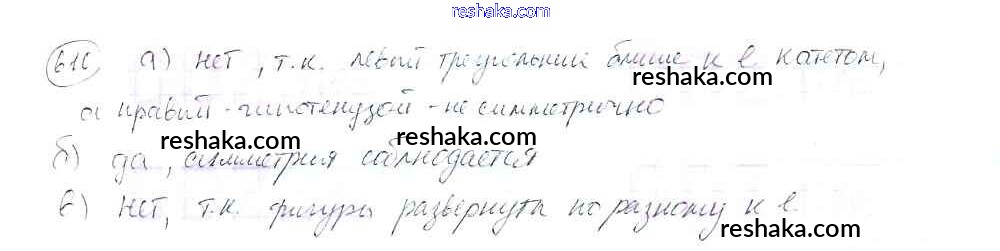 reshaka.com
616 а) нет, т.к. левый треугольник ближе к l катетом,
reshaka.com
а правый - гипотенузой - не симметрично
reshaka.com reshaka.com
б) да, симметрия соблюдается
reshaka.com
в) нет, т.к. фигуры развернуты по разному к l.
reshaka.com